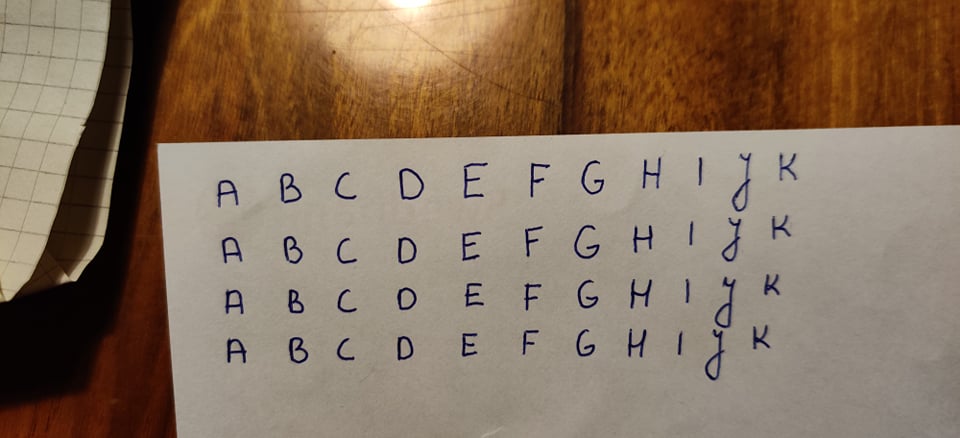 A B C D E F G H I J K
A B C D E F G H I J K
A B C D E F G H I J K
A B C D E F G H I J K